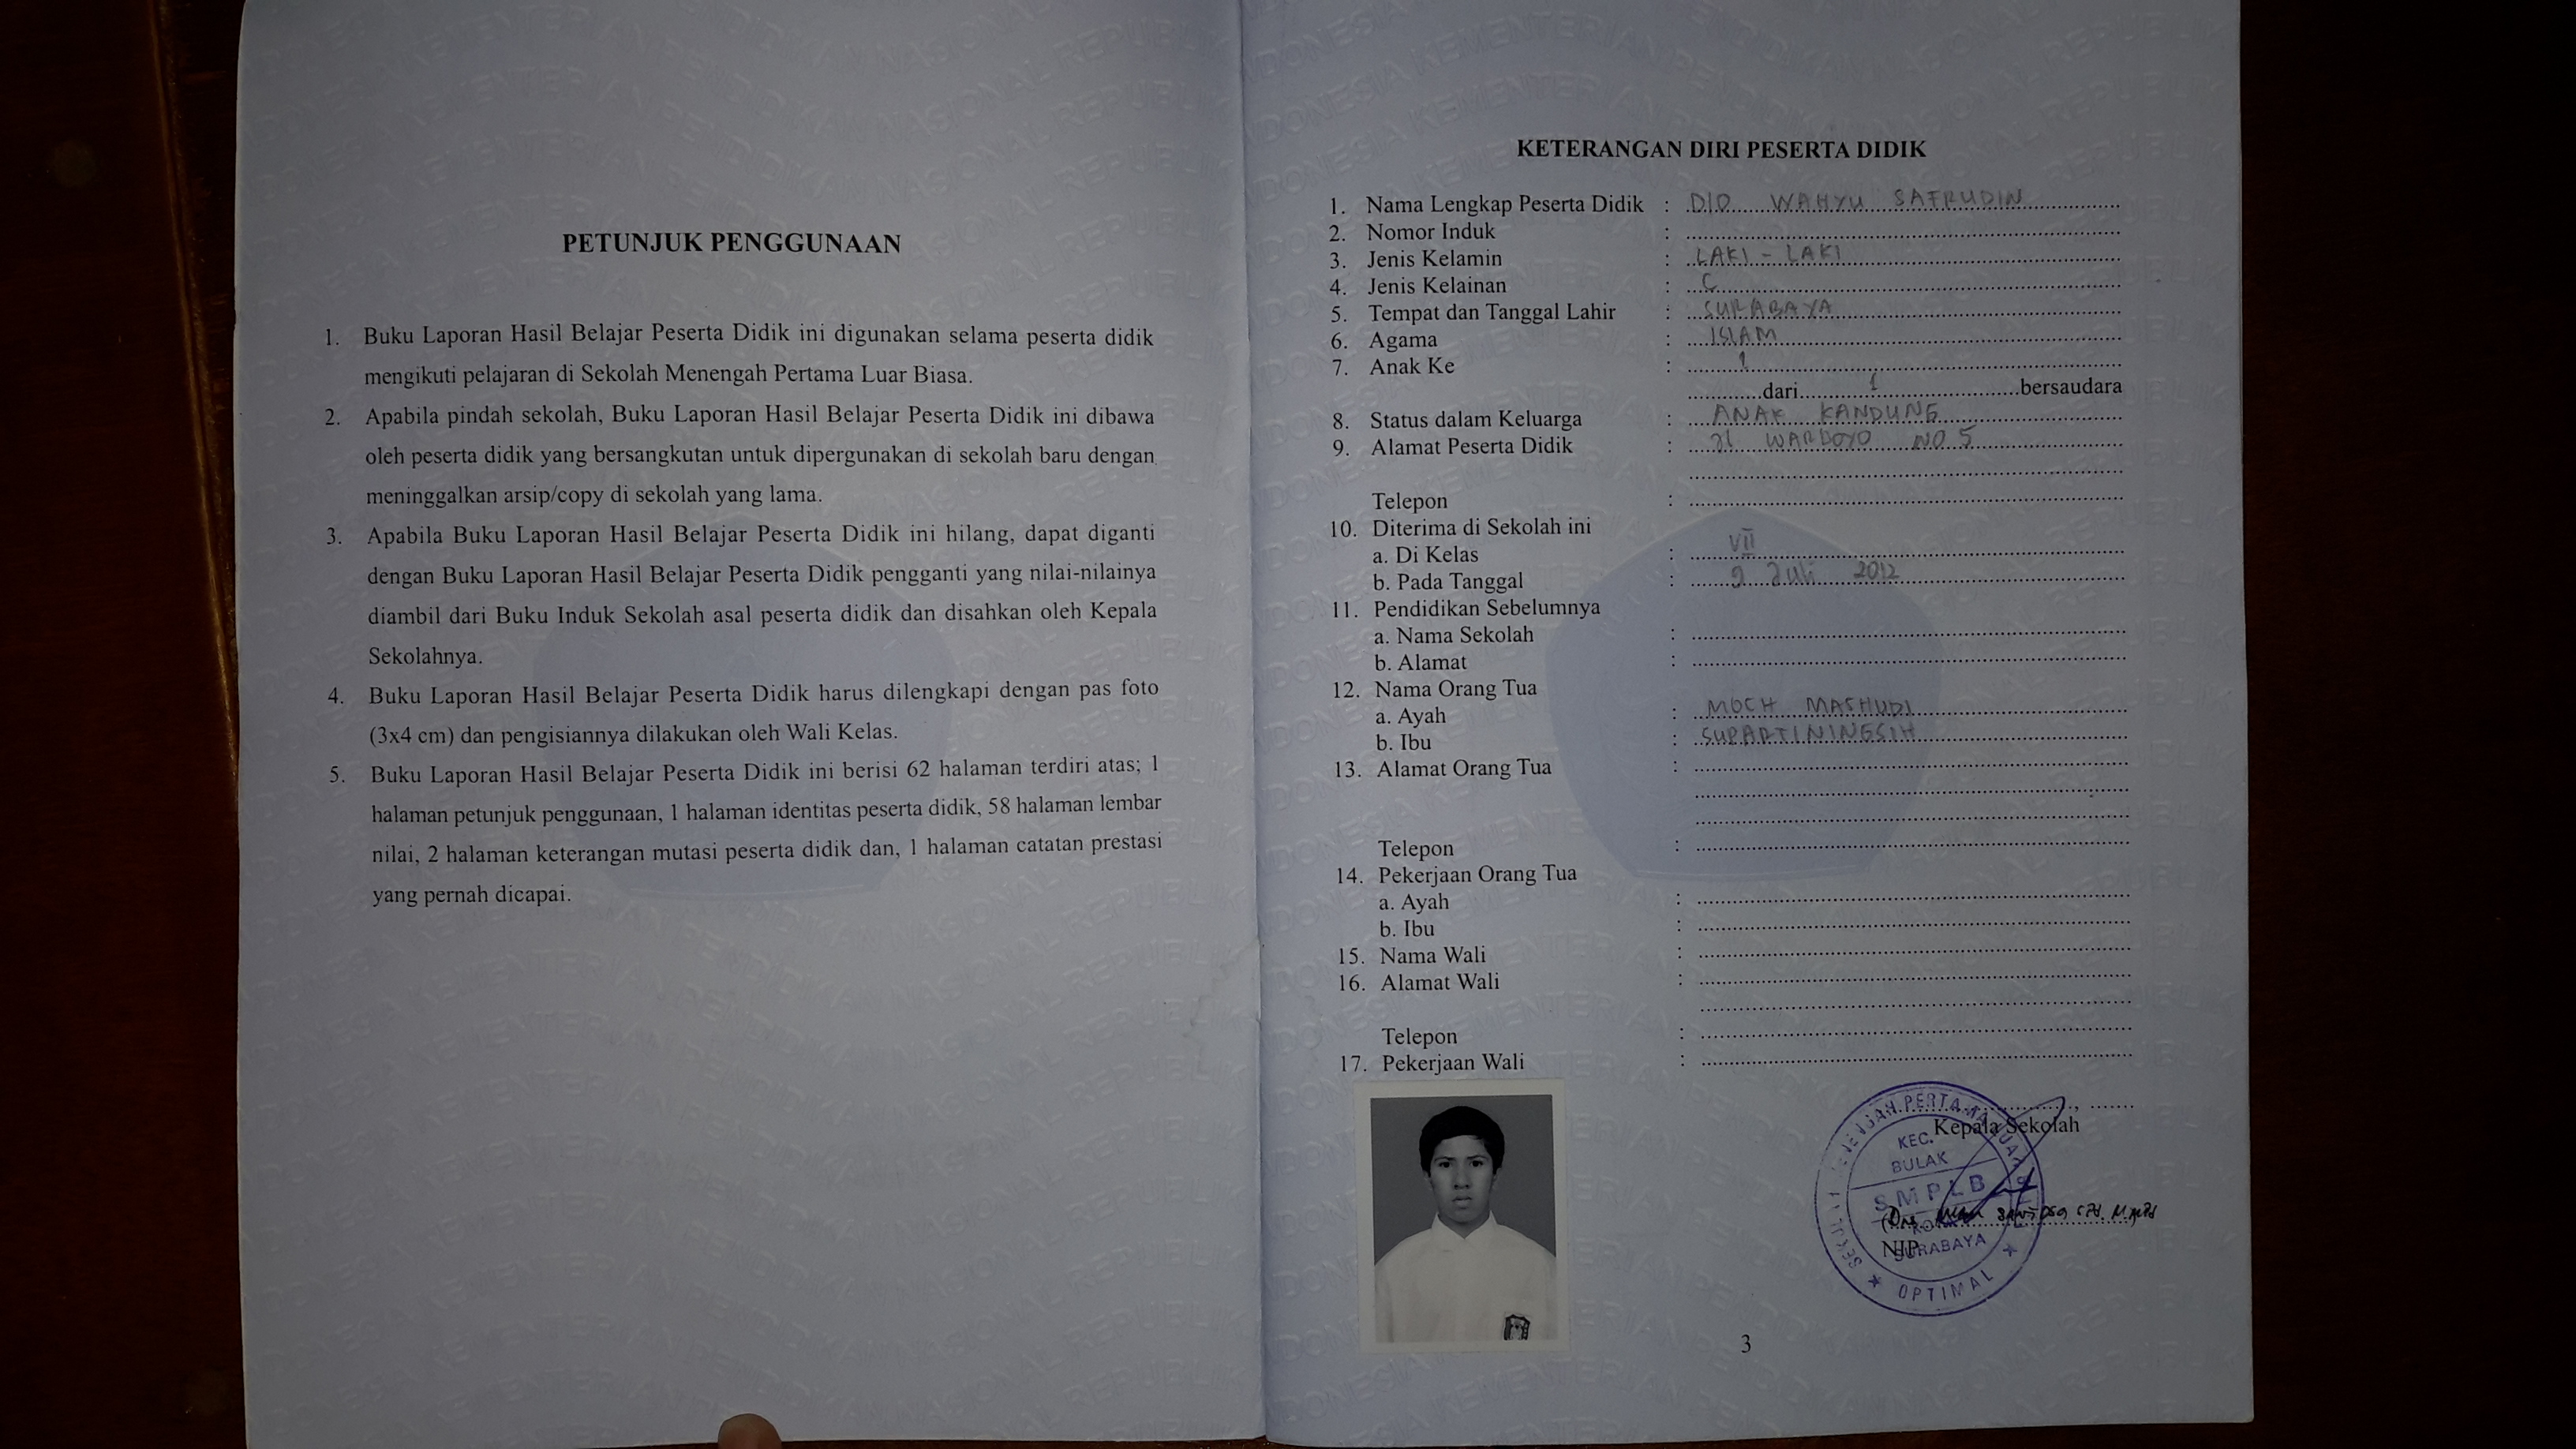 PETUNJUK PENGGUNAAN
1. Buku Laporan Hasil Belajar Peserta Didik ini digunakan selama peserta didik
mengikuti pelajaran di Sekolah Menengah Pertama Luar Biasa.
2. Apabila pindah sekolah, Buku Laporan Hasil Belajar Peserta Didik ini dibawa
oleh peserta didik yang bersangkutan untuk dipergunakan di sekolah baru dengan
meninggalkan arsip/copy di sekolah yang lama.
3. Apabila Buku Laporan Hasil Belajar Peserta Didik ini hilang, dapat diganti
dengan Buku Laporan Hasil Belajar Peserta Didik pengganti yang nilai-nilainya
diambil dari Buku Induk Sekolah asal peserta didik dan disahkan oleh Kepala
Sekolahnya.
4. Buku Laporan Hasil Belajar Peserta Didik harus dilengkapi dengan pas foto
(3x4 cm) dan pengisiannya dilakukan oleh Wali Kelas.
5. Buku Laporan Hasil Belajar Peserta Didik ini berisi 62 halaman terdiri atas; 1
halaman petunjuk penggunaan, 1 halaman identitas peserta didik, 58 halaman lembar
nilai, 2 halaman keterangan mutasi peserta didik dan, 1 halaman catatan prestasi
yang pernah dicapai.
KETERANGAN DIRI PESERTA DIDIK
1. Nama Lengkap Peserta Didik : DIO WAHYU SAFRUDIN
2. Nomor Induk :
3. Jenis Kelamin : LAKI - LAKI
4. Jenis Kelainan : C
5. Tempat dan Tanggal Lahir : SURABAYA
6. Agama : ISLAM
7. Anak Ke : 1
dari 1 bersaudara
8. Status dalam Keluarga : ANAK KANDUNG
9. Alamat Peserta Didik : Jl WARDOYO NO 5
Telepon :
10. Diterima di Sekolah ini
a. Di Kelas : VII
b. Pada Tanggal : 9 Juli 2012
11. Pendidikan Sebelumnya
a. Nama Sekolah :
b. Alamat :
12. Nama Orang Tua
a. Ayah : MOCH MASHUDI
b. Ibu : SUPARTININGSIH
13. Alamat Orang Tua :
Telepon :
14. Pekerjaan Orang Tua
a. Ayah :
b. Ibu :
15. Nama Wali :
16. Alamat Wali :
Telepon :
17. Pekerjaan Wali :
Kepala Sekolah
KEC.
BULAK
SMPLB
SURABAYA
OPTIMAL
NIP
3